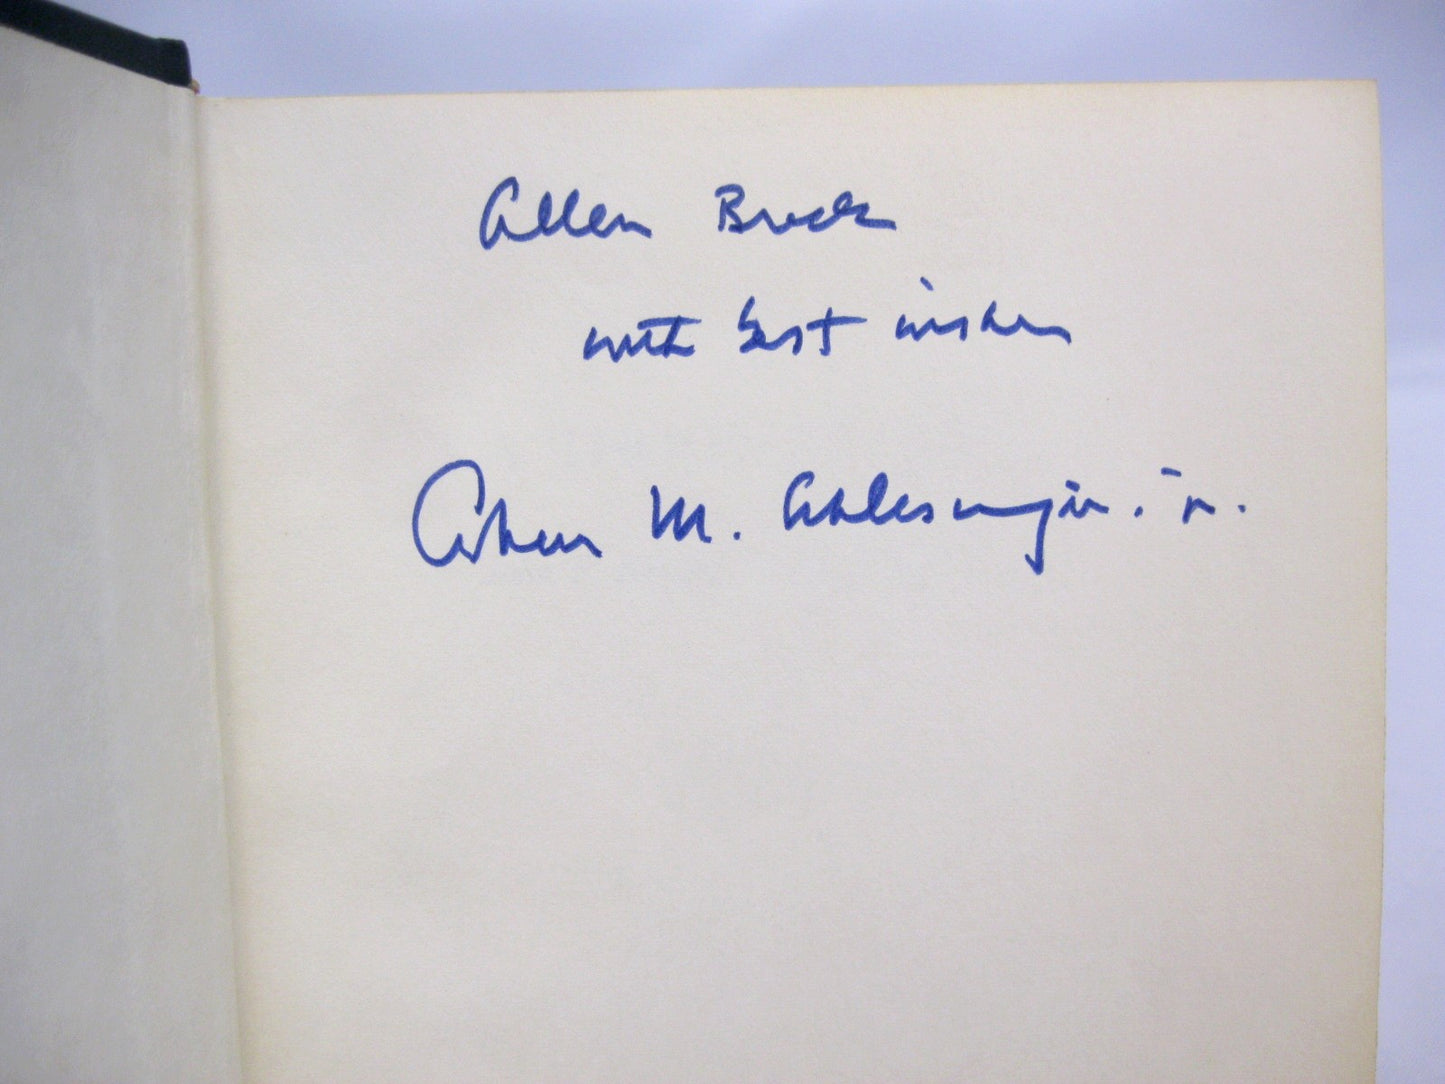 Allen Brock
with best wishes
Arthur M. Schlesinger, jr.